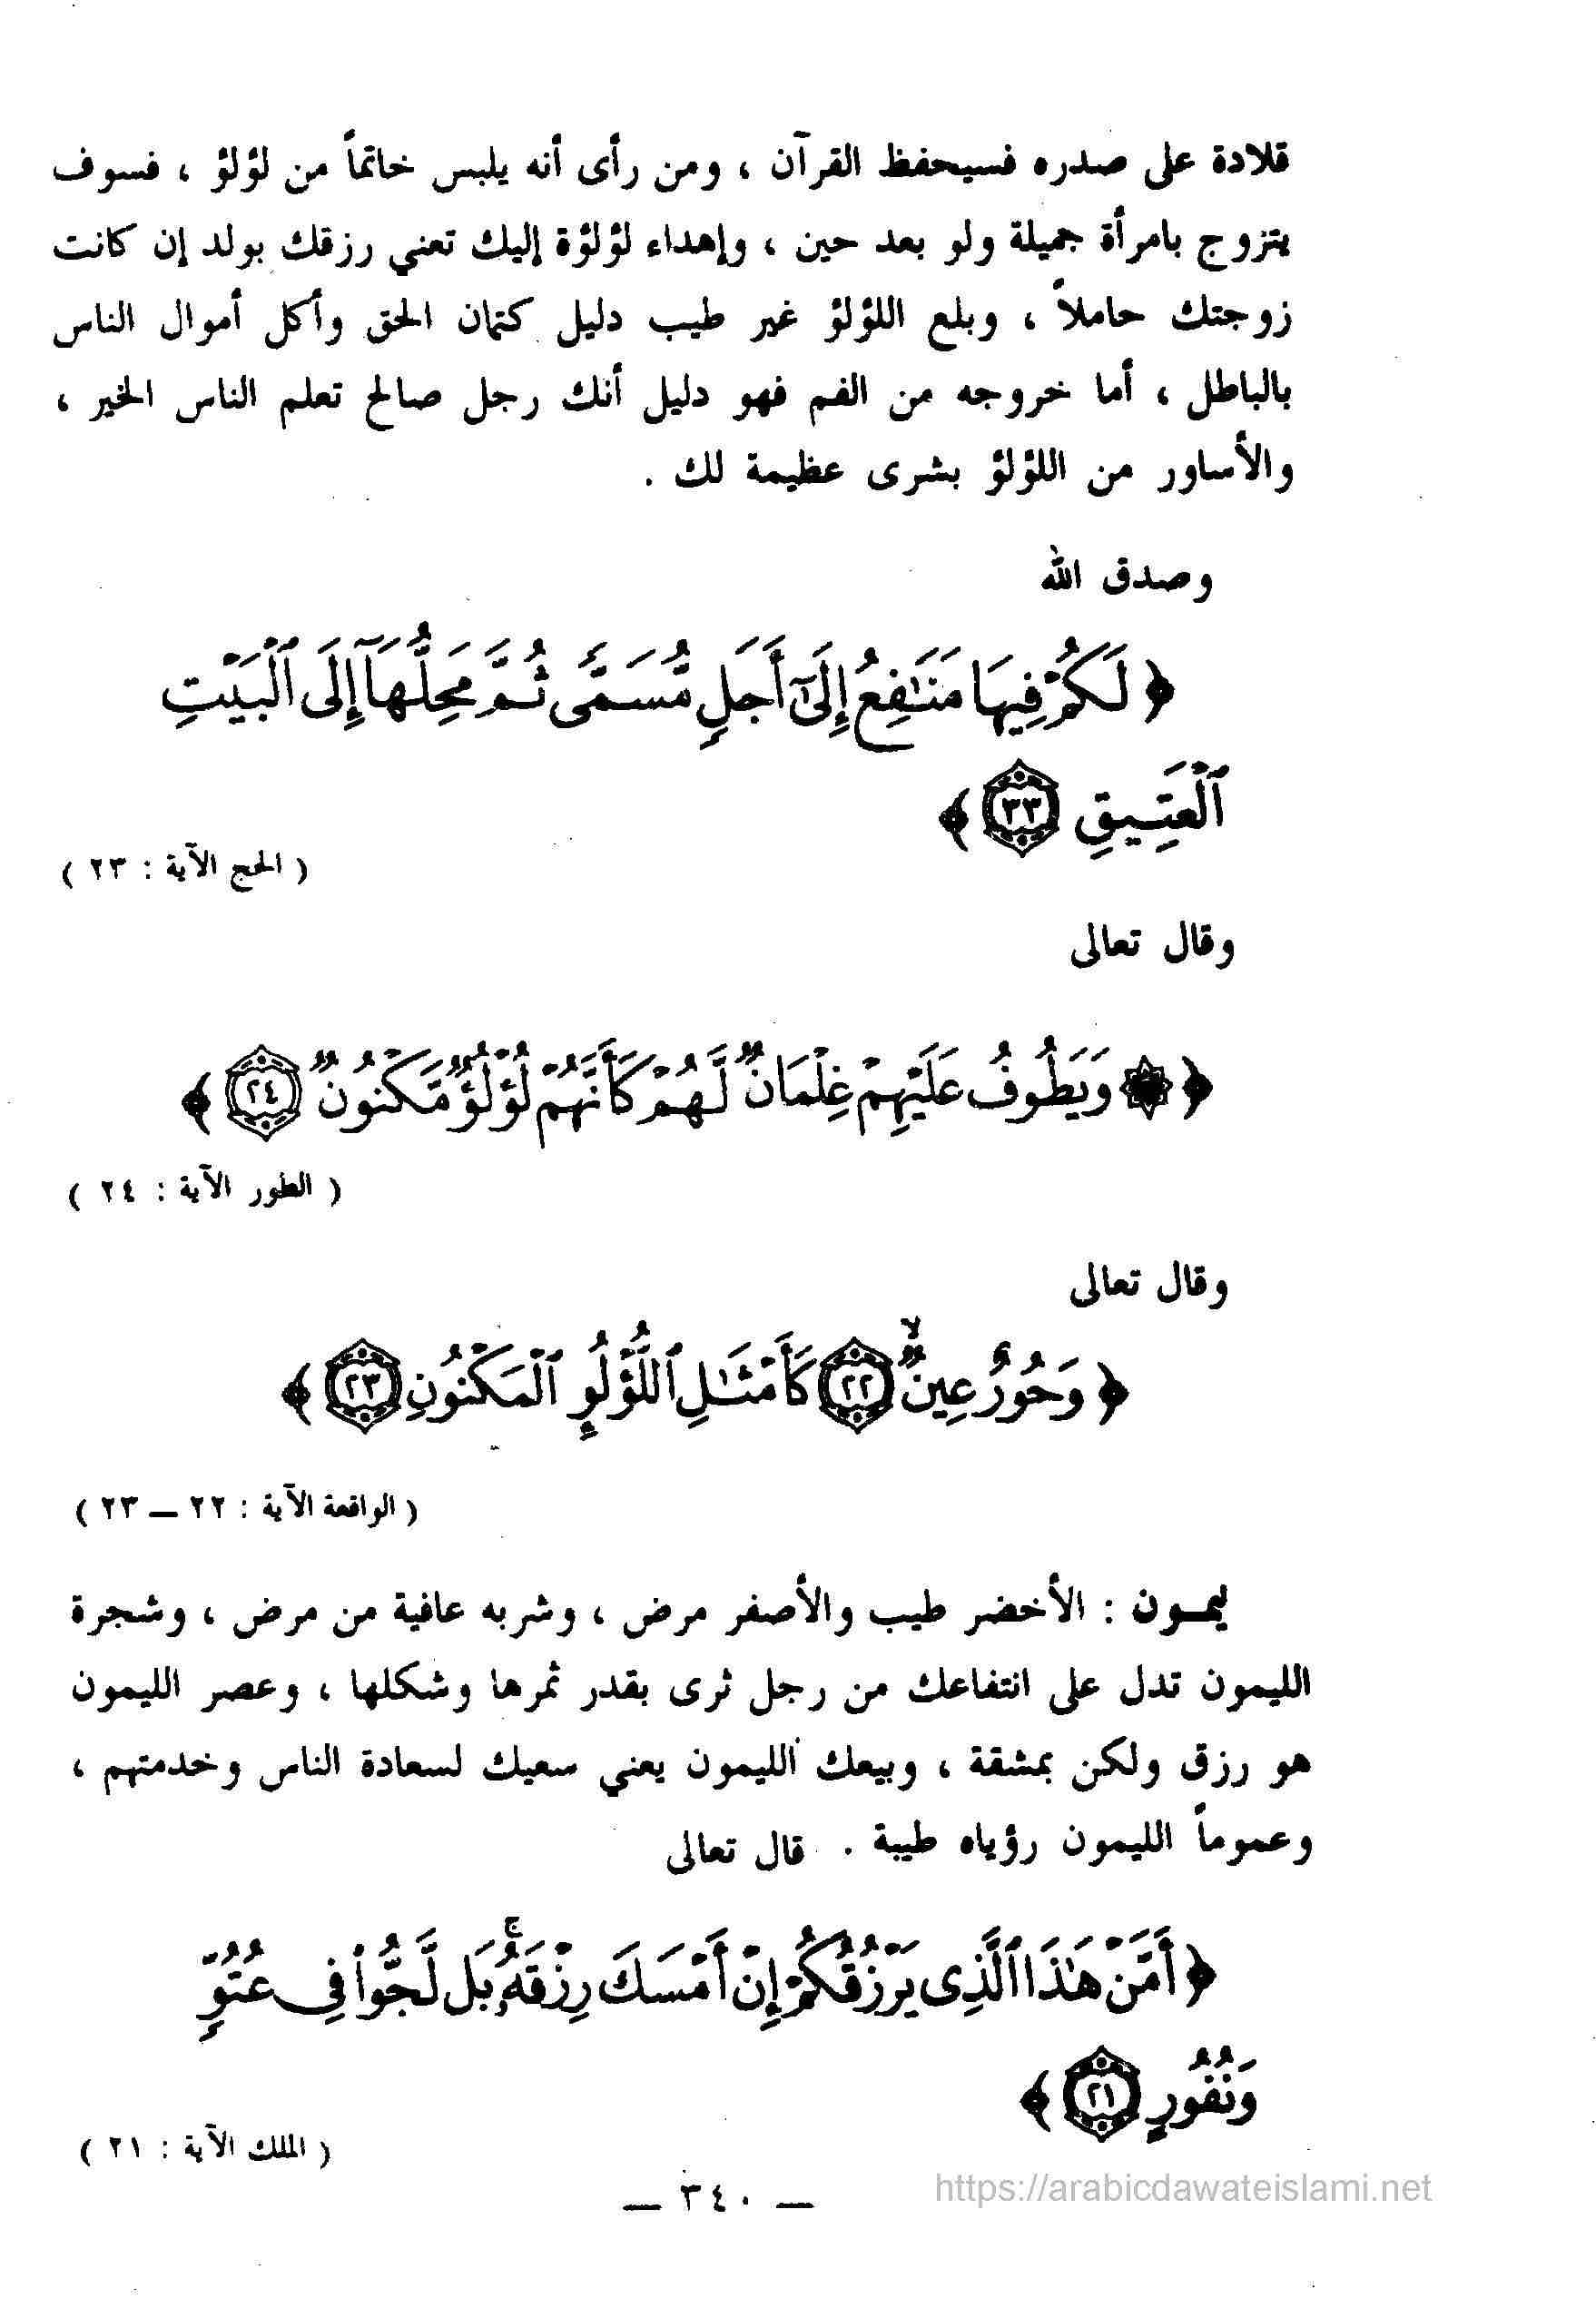 قلادة على صدره فسيحفظ القرآن ، ومن رأى أنه يلبس خاتماً من لؤلؤ ، فسوف
يتزوج بامرأة جميلة ولو بعد حين ، وإهداء لؤلؤة إليك تعني رزقك بولد إن كانت
زوجتك حاملاً ، وبلع اللؤلؤ غير طيب دليل كتمان الحق وأكل أموال الناس
بالباطل ، أما خروجه من الفم فهو دليل أنك رجل صالح تعلم الناس الخير ،
والأساور من اللؤلؤ بشرى عظيمة لك .
وصدق الله
﴿ لَكُمْ فِيهَا مَنَٰفِعُ إِلَىٰٓ أَجَلٍ مُّسَمًّى ثُمَّ مَحِلُّهَآ إِلَى ٱلْبَيْتِ
ٱلْعَتِيقِ ٣٣ ﴾
( الحج الآية : ٢٣ )
وقال تعالى
﴿ ۞ وَيَطُوفُ عَلَيْهِمْ غِلْمَانٌ لَّهُمْ كَأَنَّهُمْ لُؤْلُؤٌ مَّكْنُونٌ ٢٤ ﴾
( الطور الآية : ٢٤ )
وقال تعالى
﴿ وَحُورٌ عِينٌ ۙ ٢٢ كَأَمْثَٰلِ ٱللُّؤْلُؤِ ٱلْمَكْنُونِ ٢٣ ﴾
( الواقعة الآية : ٢٢ – ٢٣ )
ليمون : الأخضر طيب والأصفر مرض ، وشربه عافية من مرض ، وشجرة
الليمون تدل على انتفاعك من رجل ثرى بقدر ثمرها وشكلها ، وعصر الليمون
هو رزق ولكن بمشقة ، وبيعك الليمون يعني سعيك لسعادة الناس وخدمتهم ،
وعموماً الليمون رؤياه طيبة . قال تعالى
﴿ أَمَّنْ هَٰذَا ٱلَّذِى يَرْزُقُكُمْ إِنْ أَمْسَكَ رِزْقَهُۥ ۚ بَل لَّجُّوا۟ فِى عُتُوٍّ
وَنُفُورٍ ٢١ ﴾
( الملك الآية : ٢١ )
— ٣٤٠ —
https://arabicdawateislami.net